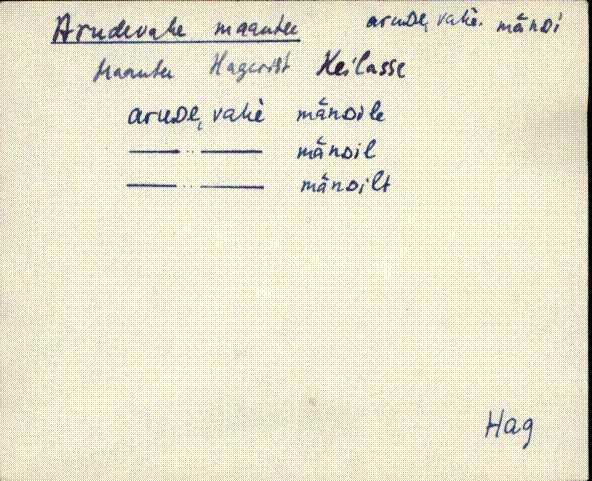 Arudevahe maantee aruDe, vahè. mǎnDi
Maantee Hagerist Keilasse
aruDe, vahè mǎnDile
—— " —— mǎnDil
—— " —— mǎnDilt
Hag